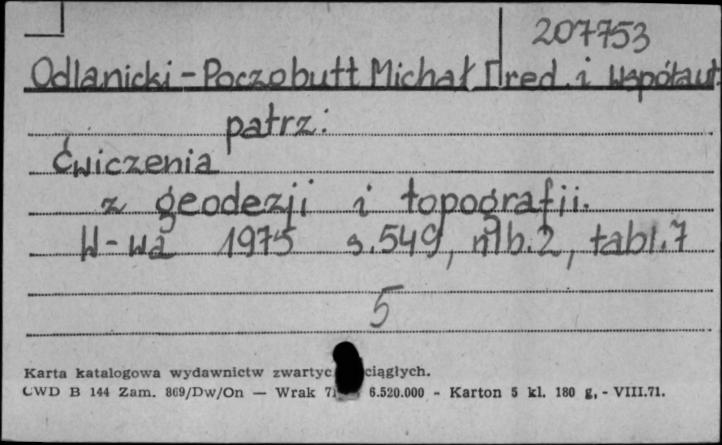 207753
Odlanicki-Poczobutt Michał [red. i współaut.
patrz:
Ćwiczenia
z geodezji i topografii.
W-wa 1975 s.549, nlb.2, tabl.7
5
Karta katalogowa wydawnictw ciągłych.
CWD B 144 Zam. 869/Dw/On — Wrak 6.520.000 - Karton 5 kl. 180 g, - VIII.71.